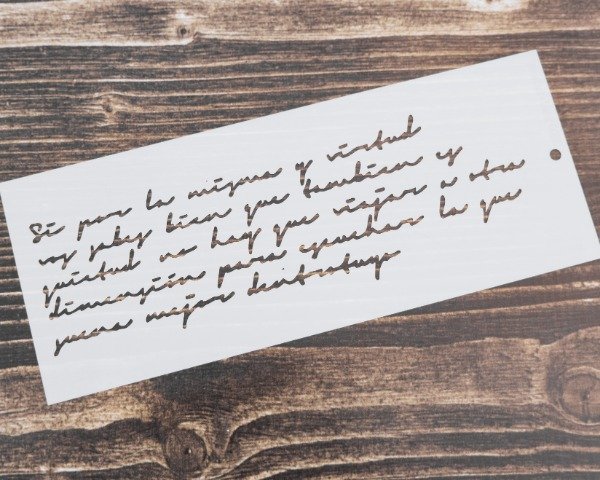 Si por la misma y virtud
vos sabes bien que tambien y
quietud no hay que viajar a otra
dimensión para escuchar la que
suena mejor